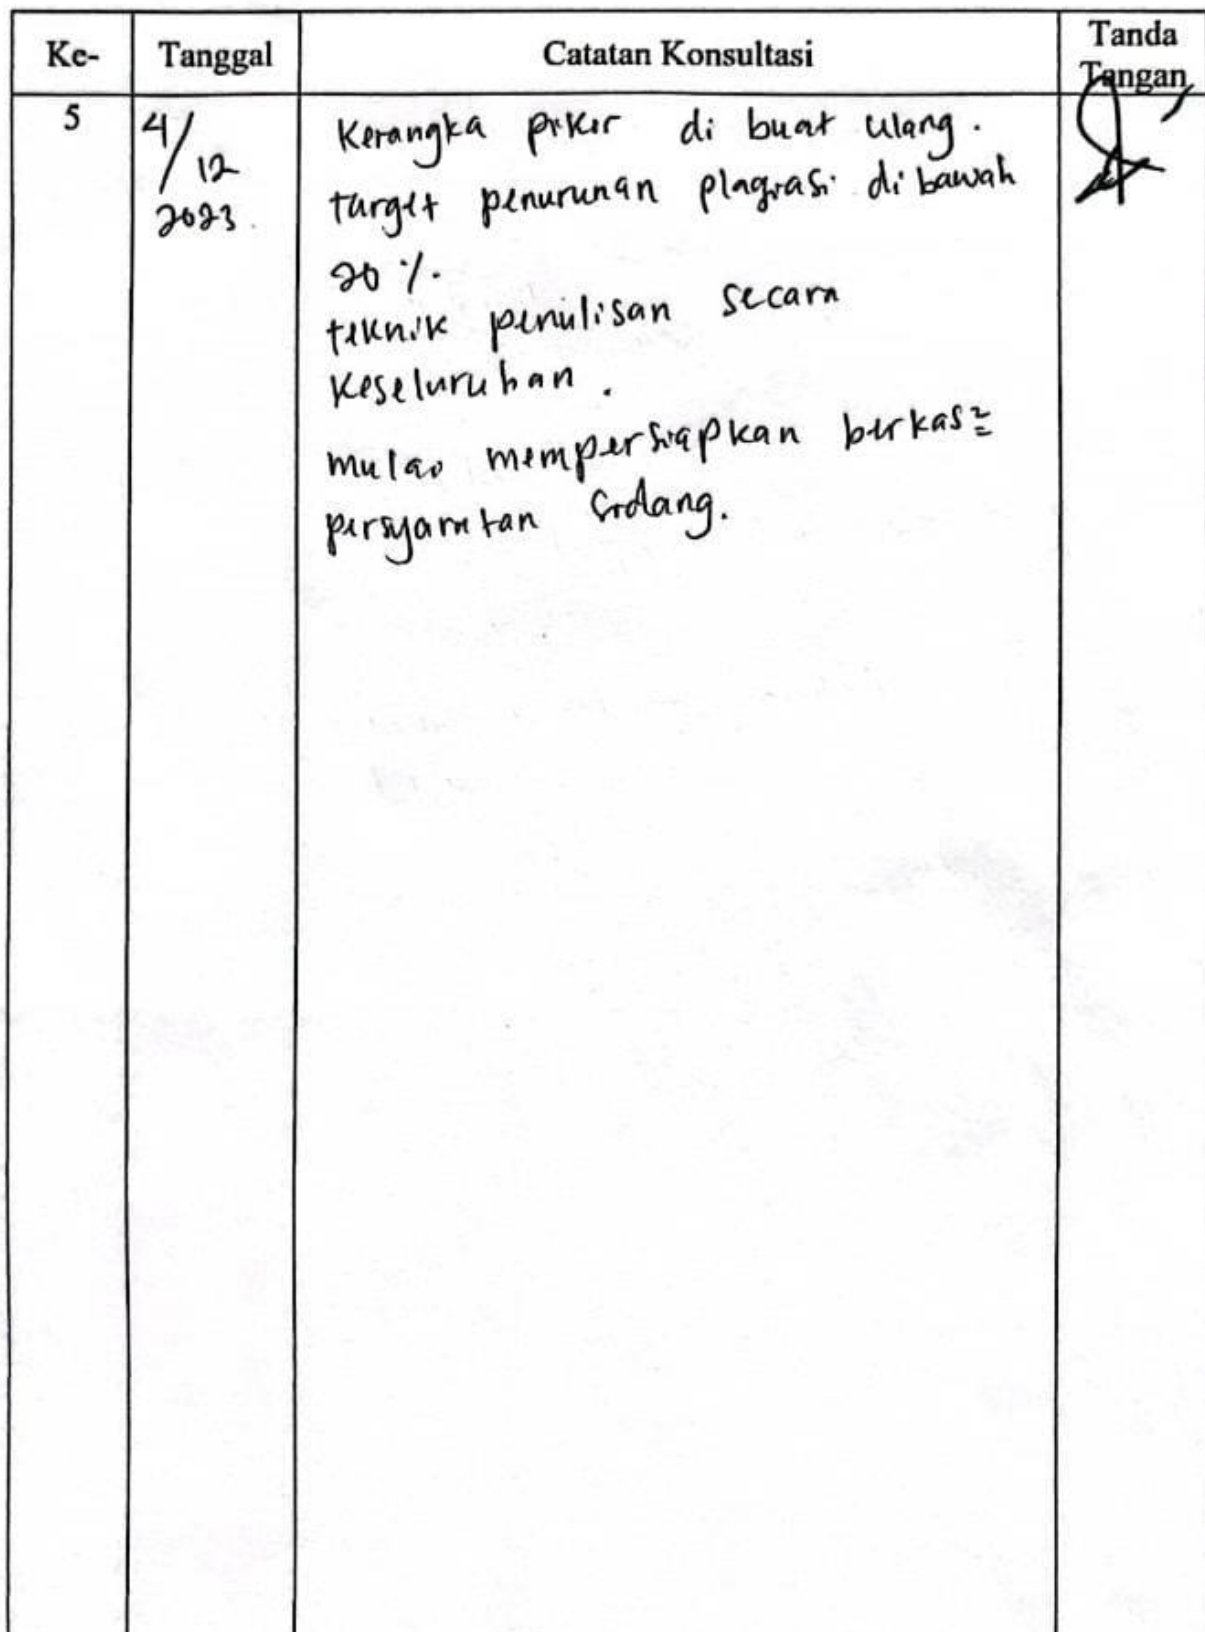 Ke- Tanggal Catatan Konsultasi Tanda Tangan
5 4/12 2023.
Kerangka pikir di buat ulang.
target penurunan plagiasi di bawah
20 %.
teknik penulisan secara
keseluruhan.
mulai mempersiapkan berkas²
persyaratan sidang.